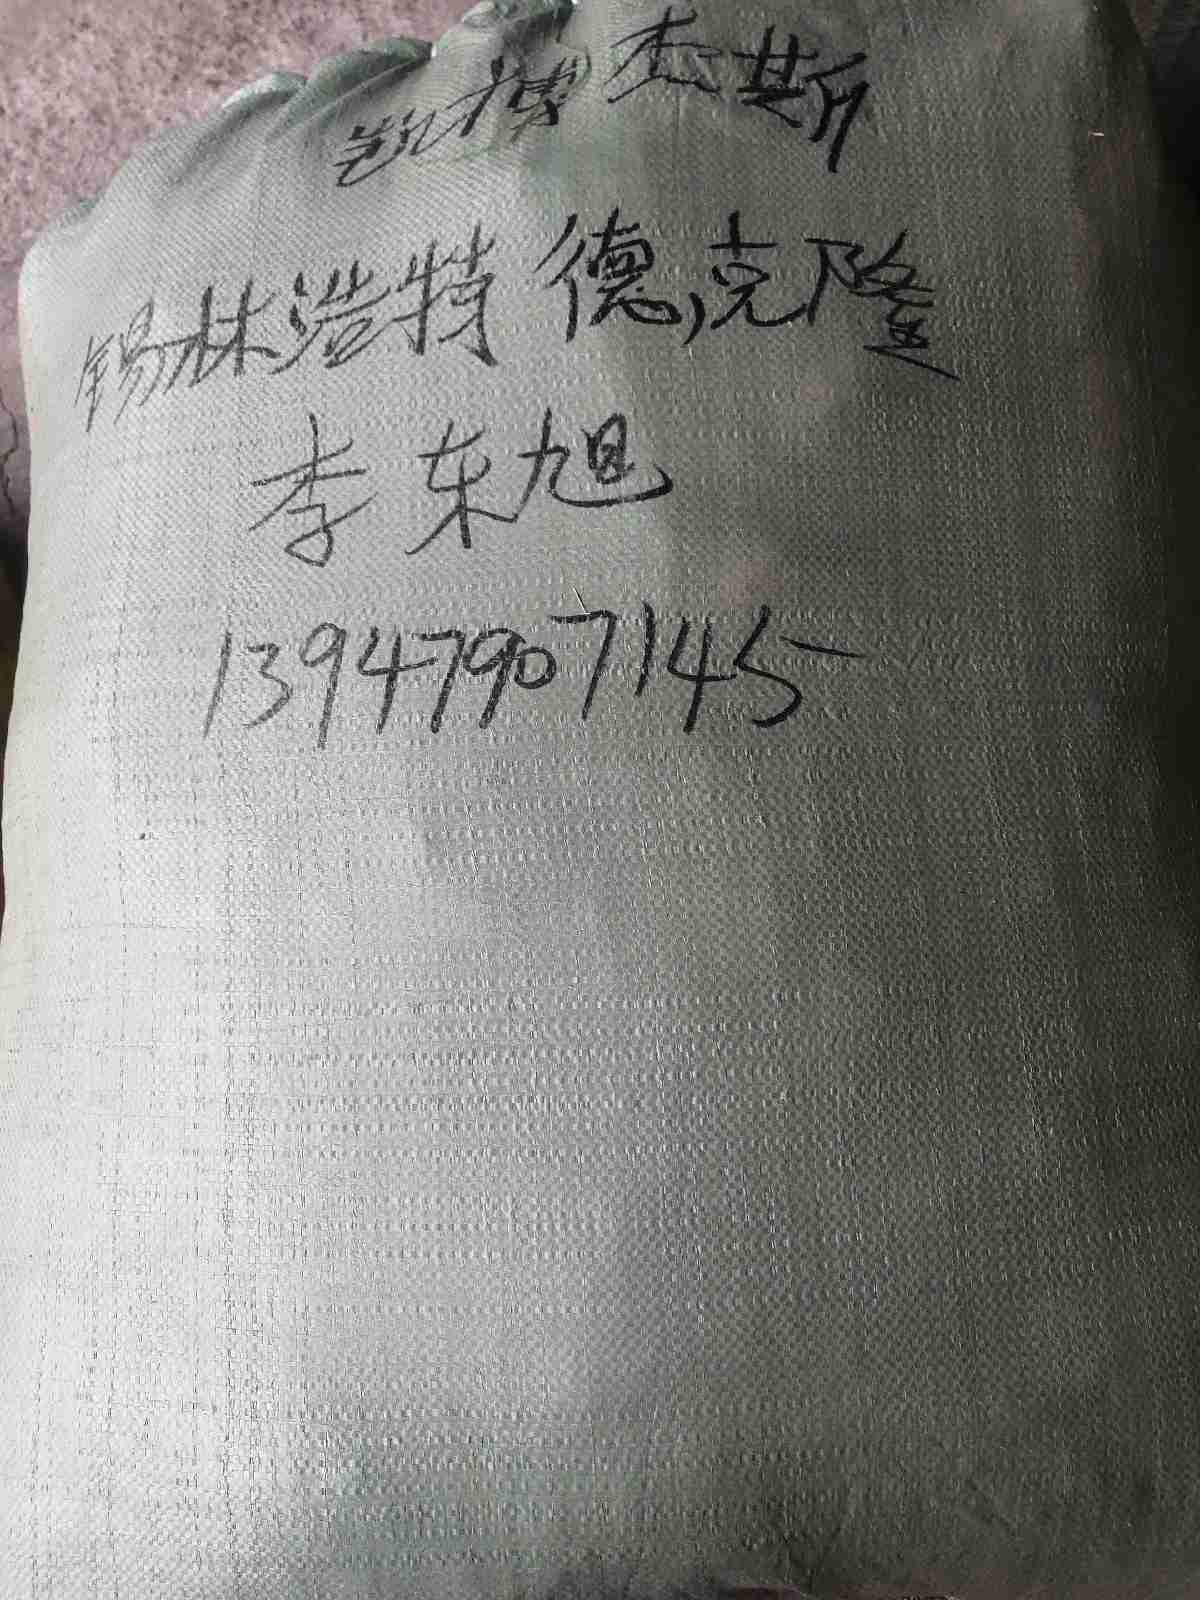 凯博杰斯
锡林浩特德克隆
李东旭
13947907145